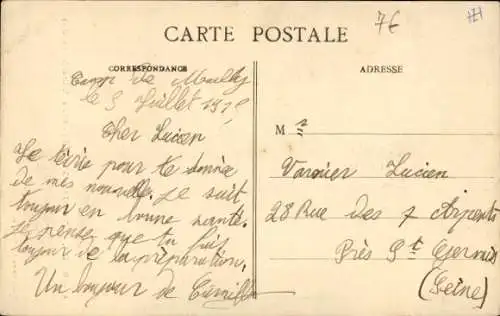 7€
CARTE POSTALE
CORRESPONDANCE
ADRESSE
Camp de Mailly
le 3 Juillet 191
Cher Lucien
Je técrie pour te donnée
de mes nouvelles. Je suit
toujour en bonne santé.
Je pense que tu fait
toujour de la préparation.
Un bonjour de
M r
Varnier Lucien
28 Rue des 7 Arpents
Près St Gervais
(Seine)